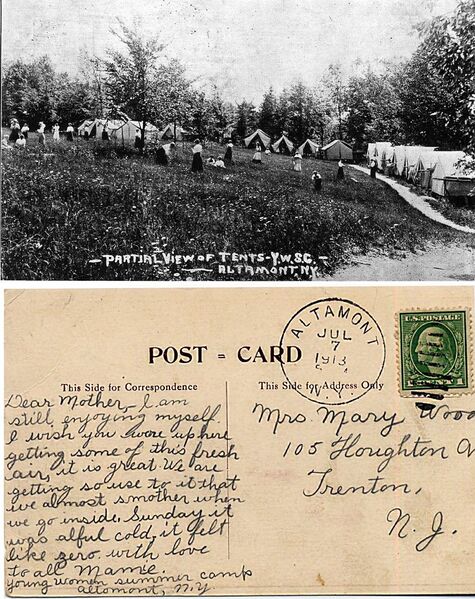 - PARTIAL VIEW OF TENTS - Y.W.S.C. -
ALTAMONT NY
POST = CARD
ALTAMONT
JUL
7
1913
N.Y.
U.S. POSTAGE
This Side for Correspondence
This Side for Address Only
Dear Mother, I am
still enjoying myself.
I wish you were up here
getting some of this fresh
air, it is great. We are
getting so use to it that
we almost smother when
we go inside. Sunday it
was alful cold, it felt
like zero, with love
to all Mamie.
young women summer camp
altomont, N.Y
Mrs. Mary Wood
105 Houghton
Trenton,
N. J.